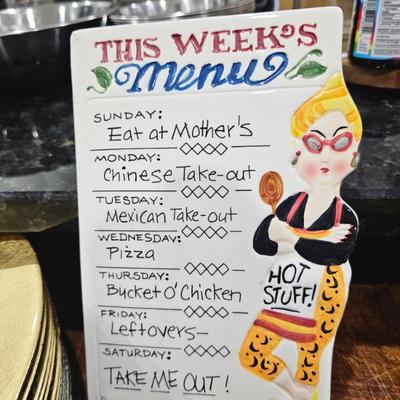 THIS WEEK'S
Menu
SUNDAY:
Eat at Mother's
MONDAY:
Chinese Take-out
TUESDAY:
Mexican Take-out
WEDNESDAY:
Pizza
THURSDAY:
Bucket O' Chicken
FRIDAY:
Leftovers
SATURDAY:
TAKE ME OUT!
HOT
STUFF!